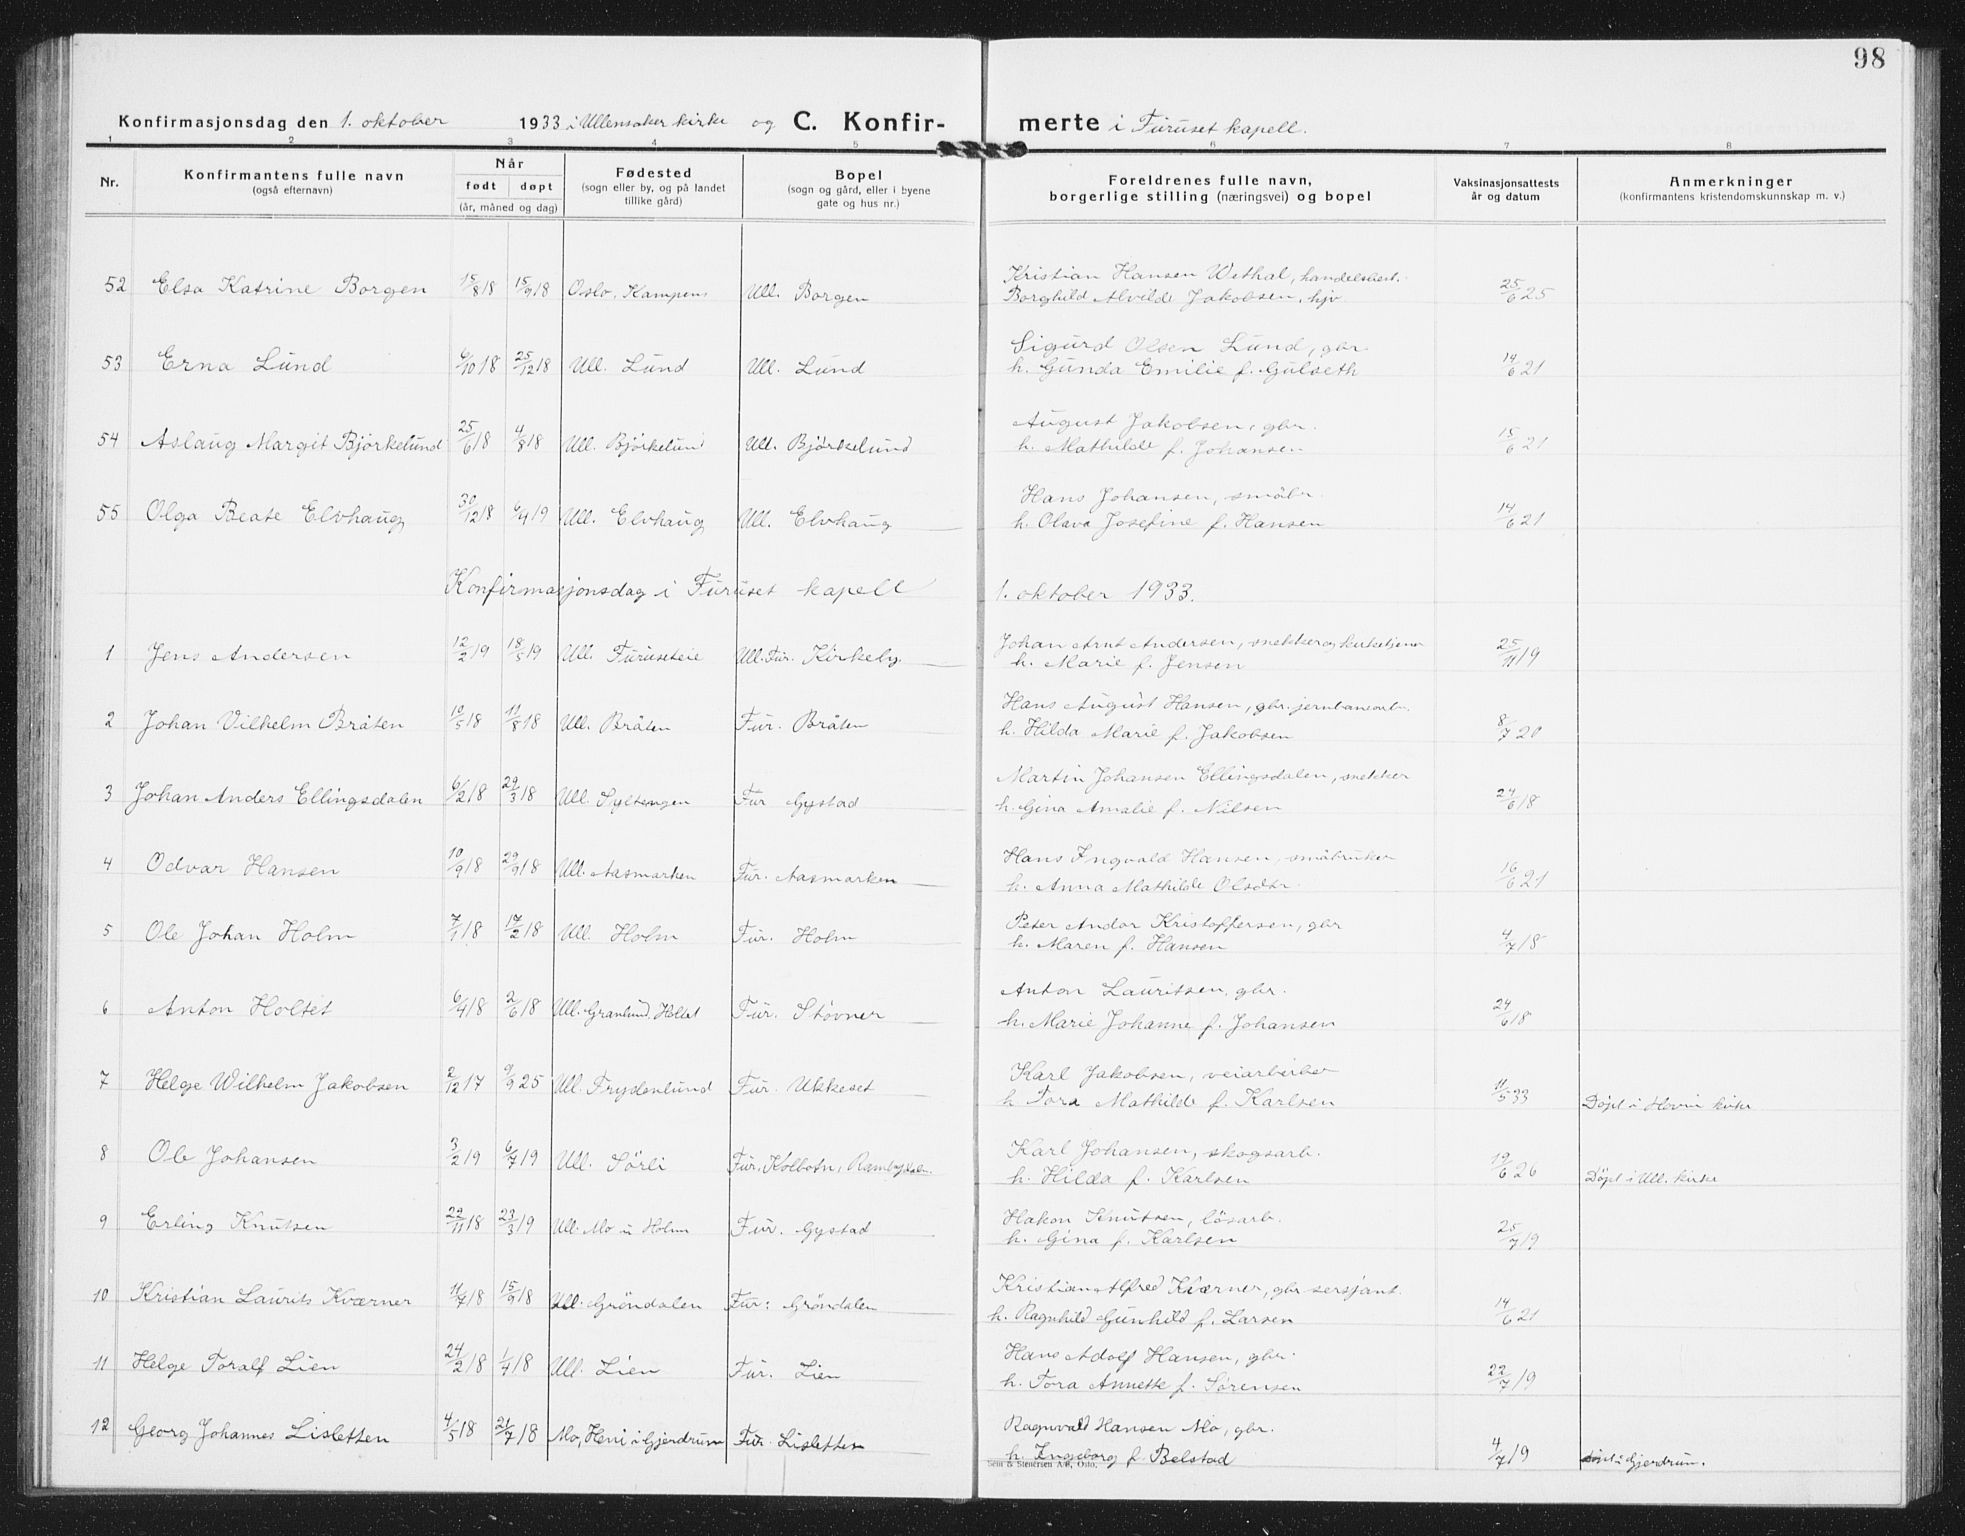 98
Konfirmasjonsdag den 1. oktober 1933 i Ullensaker kirke og C. Konfir- merte i Furuset kapell.
1 2 3 4 5 6 7 8
Nr. Konfirmantens fulle navn (også efternavn) Når født døpt (år, måned og dag) Fødested (sogn eller by, og på landet tillike gård) Bopel (sogn og gård, eller i byene gate og hus nr.) Foreldrenes fulle navn, borgerlige stilling (næringsvei) og bopel Vaksinasjonsattests år og datum Anmerkninger (konfirmantens kristendomskunnskap m. v.)
Kristian Hansen Wethal, handelsbest.
52 Elsa Katrine Borgen 15/8 18 15/9 18 Oslo, Kampens Ull. Borgen Borghild Alvilde Jakobsen, hjv. 25/6 25
Sigurd Olsen Lund, gbr.
53 Erna Lund 6/10 18 25/12 18 Ull. Lund Ull. Lund h. Gunda Emilie f. Gulseth 14/6 21
August Jakobsen, gbr.
54 Aslaug Margit Björkelund 25/6 18 4/8 18 Ull. Björkelund Ull. Björkelund h. Mathilde f. Johansen 15/6 21
Hans Johansen, småbr.
55 Olga Beate Elvhaug 30/12 18 6/4 19 Ull. Elvhaug Ull. Elvhaug h. Olava Josefine f. Hansen 14/6 21
Konfirmasjonsdag i Furuset kapell 1. oktober 1933.
Johan Arnt Andersen, snekker og kirketjener
1 Jens Andersen 12/2 19 18/5 19 Ull. Furuseteie Ull. Fur. Kirkeby h. Marie f. Jensen 25/11 19
Hans August Hansen, gbr. jernbanearb.
2 Johan Vilhelm Bråten 19/5 18 11/8 18 Ull. Bråten Fur. Bråten h. Hilda Marie f. Jakobsen 8/7 20
Martin Johansen Ellingsdalen, snekker
3 Johan Anders Ellingsdalen 6/2 18 29/3 18 Ull. Syltengen Fur Gystad h. Gina Amalie f. Nilsen 24/6 18
Hans Ingvald Hansen, småbruker
4 Odvar Hansen 10/9 18 29/9 18 Ull. Aasmarken Fur. Aasmarken h. Anna Mathilde Olsdtr. 16/6 21
Peter Andor Kristoffersen, gbr
5 Ole Johan Holm 7/1 18 17/2 18 Ull. Holm Fur. Holm h. Maren f. Hansen 4/7 18
Anton Lauritsen, gbr.
6 Anton Holtet 6/4 18 2/6 18 Ull. Granlund, Holtet Fur. Stövner h. Marie Johanne f. Johansen 24/6 18
Karl Jakobsen, veiarbeider
7 Helge Wilhelm Jakobsen 2/12 17 9/9 25 Ull. Frydenlund Fur. Ukkeset h. Tora Mathilde f. Karlsen 11/5 33 Döpt i Hovin kirke
Karl Johansen, skogsarb.
8 Ole Johansen 3/2 19 6/7 19 Ull. Sörli Fur. Kolbotn, h. Hilda f. Karlsen 19/6 26 Döpt i Ull. kirke
Hakon Knutsen, lösarb.
9 Erling Knutsen 22/11 18 23/3 19 Ull. Mo u Holm Fur. Gystad h. Gina f. Karlsen 25/7 19
Kristian Alfred Kværner, gbr sersjant.
10 Kristian Laurits Kværner 11/7 18 15/9 18 Ull. Gröndalen Fur: Gröndalen h. Ragnhild Gunhild f. Larsen 14/6 21
Hans Adolf Hansen, gbr.
11 Helge Toralf Lien 24/2 18 1/4 18 Ull. Lien Fur. Lien h. Tora Annette f. Sörensen 22/7 19
Ragnvald Hansen Mo, gbr.
12 Georg Johannes Lisletten 4/5 18 21/7 18 Mo, Heni i Gjerdrum Fur. Lisletten h. Ingeborg f. Belstad 4/7 19 döpt i Gjerdrum.
Sem & Stenersen A/S, Oslo.